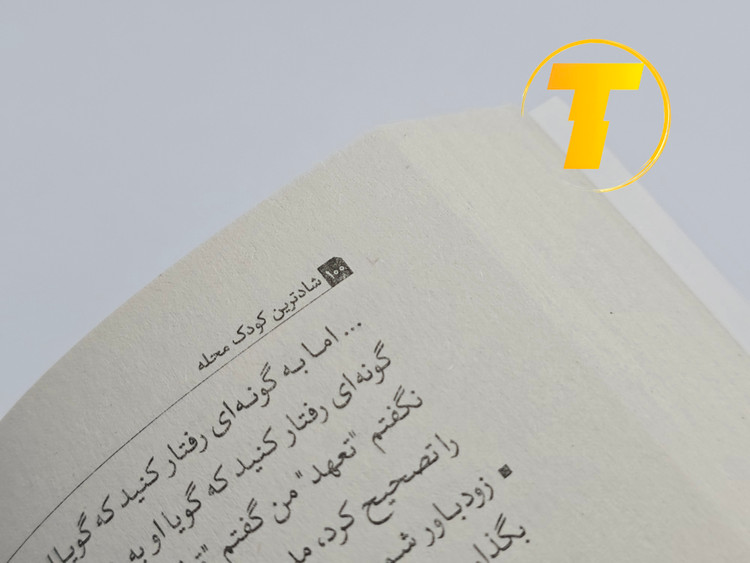 ۱۰۰ شادترین کودک محله
... اما به گونه‌ای رفتار کنید که گویا
گونه‌ای رفتار کنید که گویا او به
نگفتم "تعهد" من گفتم "
را تصحیح کرد،
▪ زودباور
بگذار
T